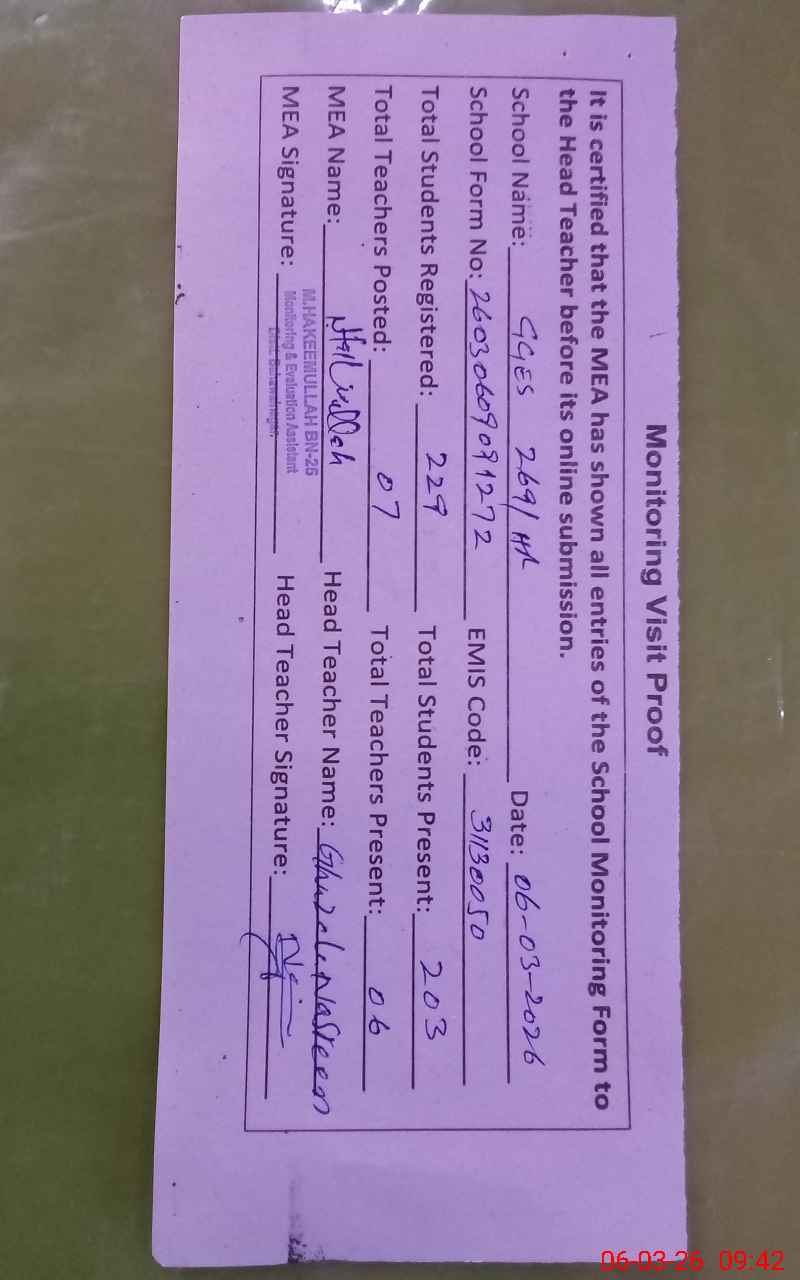 Monitoring Visit Proof
It is certified that the MEA has shown all entries of the School Monitoring Form to
the Head Teacher before its online submission.
School Name: GGES 269/HR Date: 06-03-2026
School Form No: 26030609091272 EMIS Code: 31130050
Total Students Registered: 229 Total Students Present: 203
Total Teachers Posted: 07 Total Teachers Present: 06
MEA Name: Head Teacher Name: Ghuzala Nasreen
M.HAKEEMULLAH BN-26
Monitoring & Evaluation Assistant
Distt. Bahawalnagar.
MEA Signature: Head Teacher Signature:
06-03-26 09:42